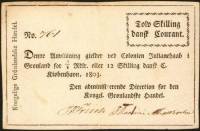 No. 761
Tolv Skilling
dansk Courant.
Denne Anviisning gielder ved Colonien Julianehaab i
Grønland for ⅛ Rdlr. eller 12 Skilling dansk C.
Kiøbenhavn. 1803.
Den administrerende Direction for den
Kongel. Grønlandske Handel.
Kongelige Grønlandske Handel.